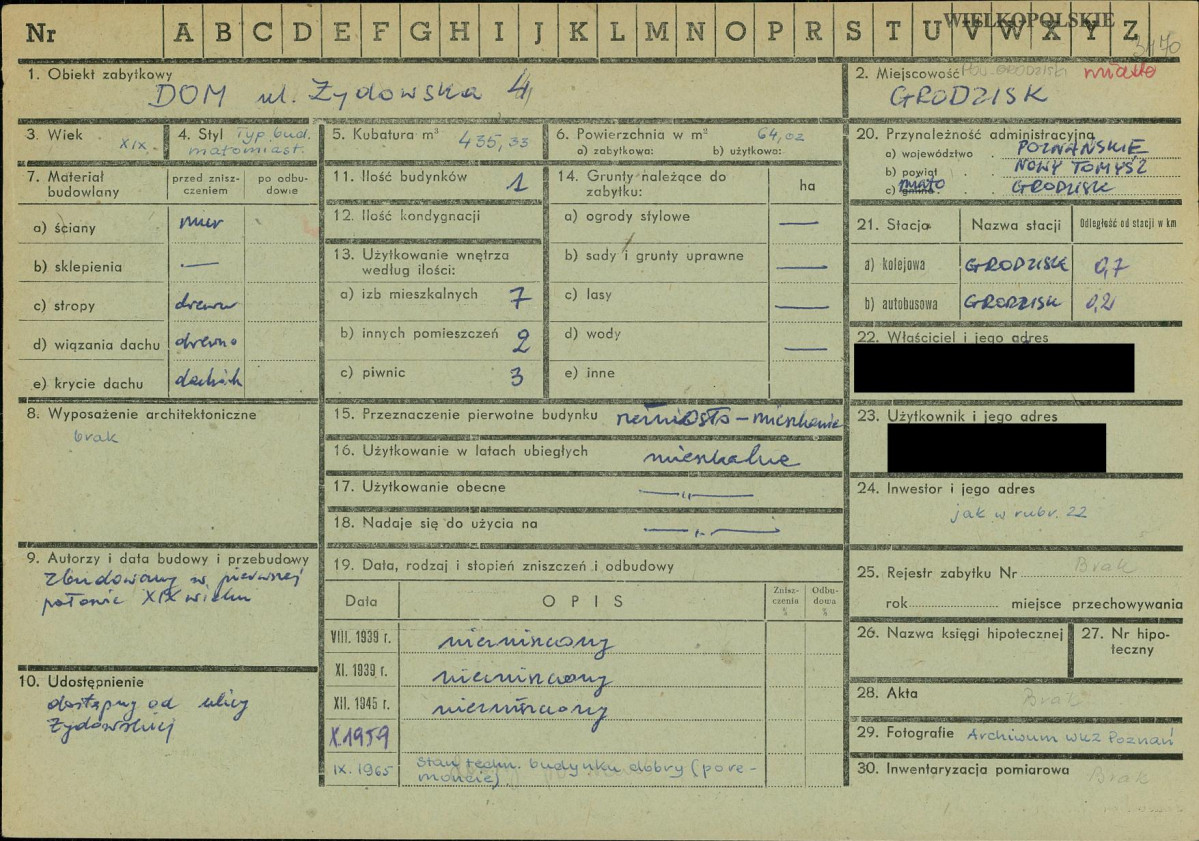 WIELKOPOLSKIE
Nr A B C D E F G H I J K L M N O P R S T U V W X Y Z
3470
1. Obiekt zabytkowy
DOM ul. Żydowska 4
2. Miejscowość miasto
GRODZISK
3. Wiek
XIX.
4. Styl Typ bud.
małomiast.
5. Kubatura m³
435,33
6. Powierzchnia w m²
64,02
a) zabytkowa: b) użytkowa:
7. Materiał budowlany
przed zniszczeniem
po odbudowie
a) ściany mur
b) sklepienia —
c) stropy drewno
d) wiązania dachu drewno
e) krycie dachu dachówk
8. Wyposażenie architektoniczne
brak
9. Autorzy i data budowy i przebudowy
Zbudowany w pierwszej
połowie XIX wieku
10. Udostępnienie
dostępny od ulicy
Żydowskiej
11. Ilość budynków 1
12. Ilość kondygnacji
13. Użytkowanie wnętrza
według ilości:
a) izb mieszkalnych 7
b) innych pomieszczeń 2
c) piwnic 3
14. Grunty należące do
zabytku:
ha
a) ogrody stylowe —
b) sady i grunty uprawne —
c) lasy —
d) wody —
e) inne
15. Przeznaczenie pierwotne budynku rzemiosło – mieszkanie
16. Użytkowanie w latach ubiegłych mieszkalne
17. Użytkowanie obecne —„—
18. Nadaje się do użycia na —„—
19. Data, rodzaj i stopień zniszczeń i odbudowy
Data
OPIS
Zniszczenia %
Odbudowa %
VIII. 1939 r. niezniszczony
XI. 1939 r. niezniszczony
XII. 1945 r. niezniszczony
X.1959
IX. 1965 stan techn. budynku dobry (po re-
moncie)
20. Przynależność administracyjna
a) województwo POZNAŃSKIE
b) powiat NOWY TOMYŚL
c) gmina miasto GRODZISK
21. Stacja
Nazwa stacji
Odległość od stacji w km
a) kolejowa GRODZISK 0,7
b) autobusowa GRODZISK 0,2
22. Właściciel i jego adres
23. Użytkownik i jego adres
24. Inwestor i jego adres
jak w rubr. 22
25. Rejestr zabytku Nr Brak
rok miejsce przechowywania
26. Nazwa księgi hipotecznej
27. Nr hipoteczny
28. Akta Brak
29. Fotografie Archiwum WKZ Poznań
30. Inwentaryzacja pomiarowa Brak